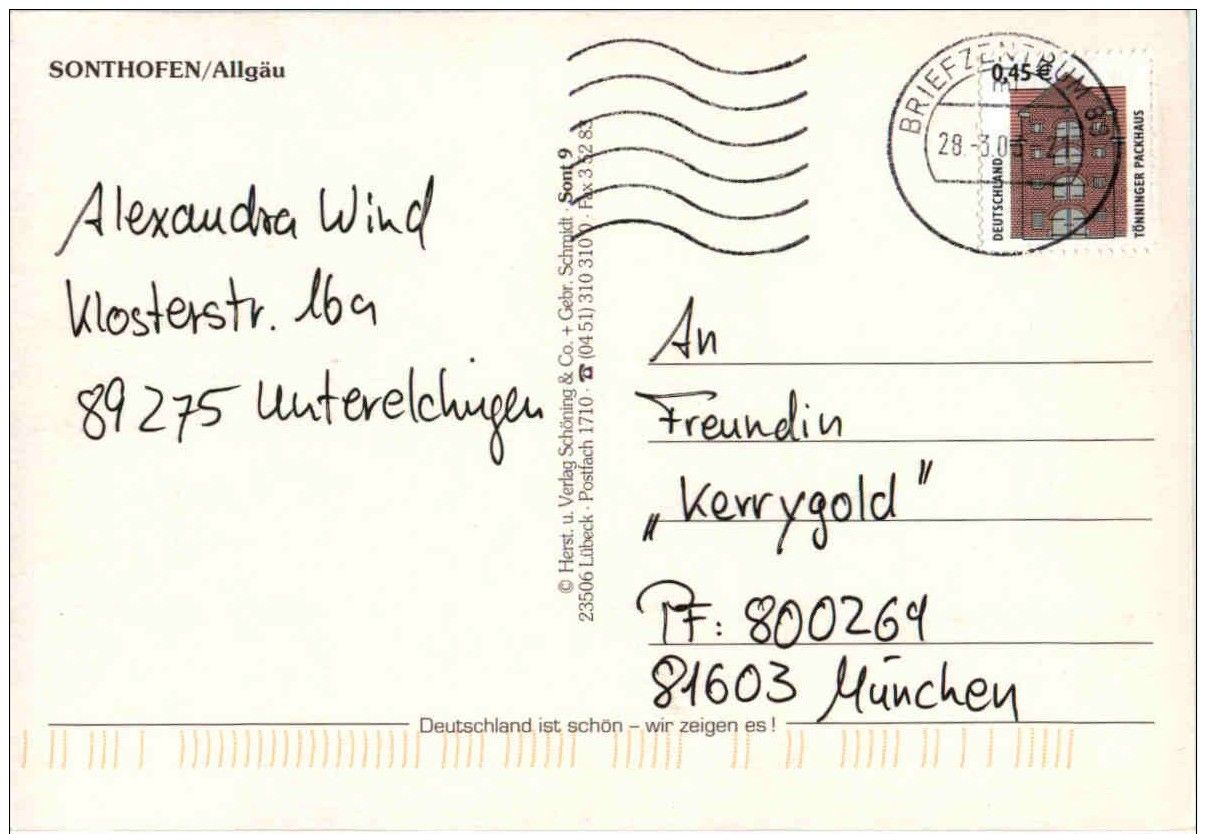 SONTHOFEN/Allgäu
Alexandra Wind
Klosterstr. 16a
89275 Unterelchingen
© Herst. u. Verlag Schöning & Co. + Gebr. Schmidt · Sont 9
23506 Lübeck · Postfach 1710 · ☎ (04 51) 310 310 0 · Fax 3 52 83
BRIEFZENTRUM 89
28.-3.0
0,45 €
DEUTSCHLAND
TÖNNINGER PACKHAUS
An
Freundin
„Kerrygold"
PF: 800269
81603 München
Deutschland ist schön – wir zeigen es!